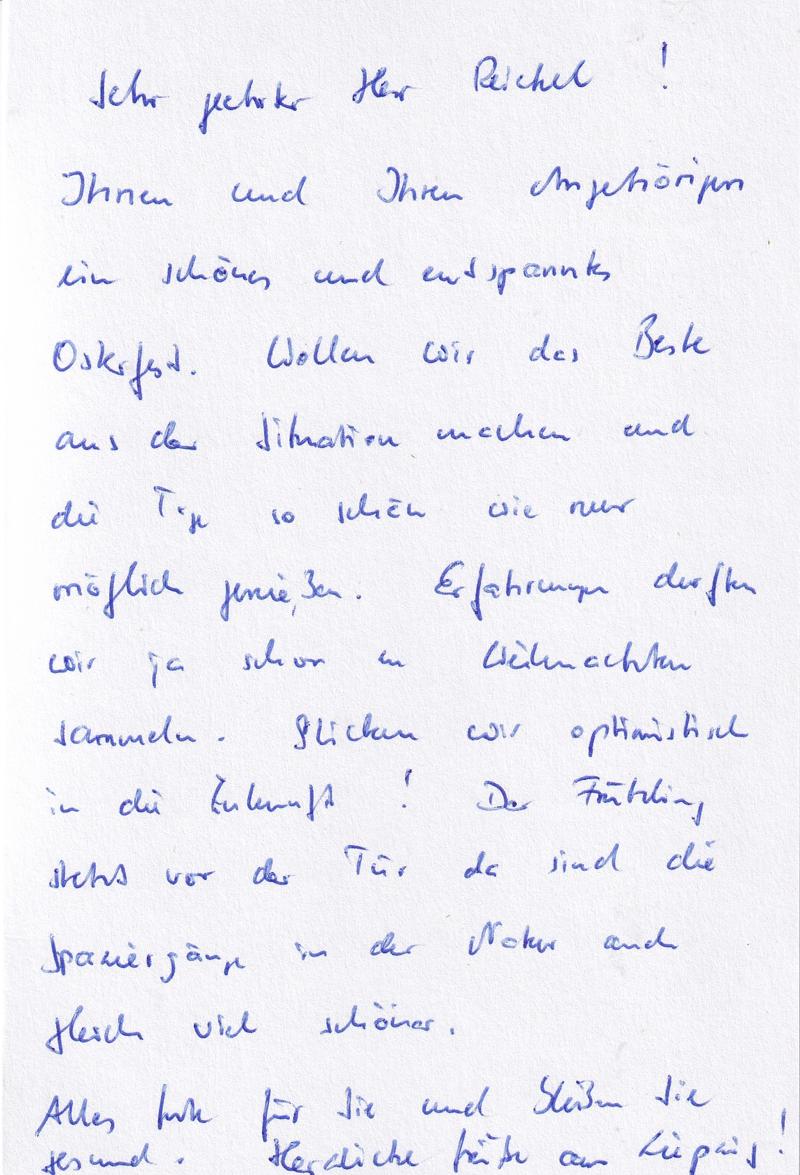 Sehr geehrter Herr Reichel !
Ihnen und Ihren Angehörigen
ein schönes und entspanntes
Osterfest. Wollen wir das Beste
aus der Situation machen und
die Tage so schön wie nur
möglich genießen. Erfahrungen durften
wir ja schon zu Weihnachten
sammeln. Blicken wir optimistisch
in die Zukunft ! Der Frühling
steht vor der Tür da sind die
Spaziergänge in der Natur auch
gleich viel schöner.
Alles Gute für Sie und bleiben Sie
gesund. Herzliche Grüße aus Leipzig !